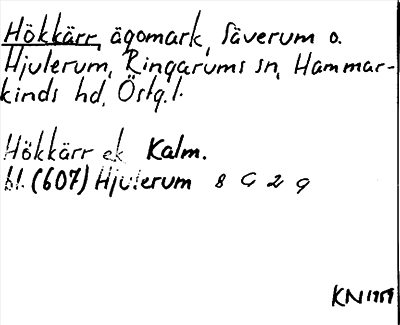 Hökkärr, ägomark, Säverum o.
Hjulerum, Ringarums sn, Hammar-
kinds hd, Östg.l.
Hökkärr ek Kalm.
bl. (607) Hjulerum 8 G 2 g
KN 1959